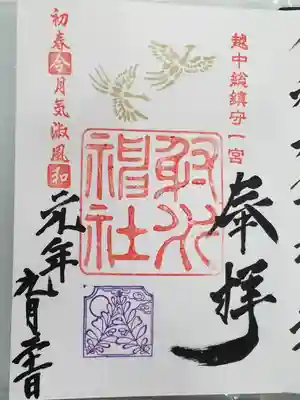 越中総鎮守一宮
奉拝
射水
神社
初春令月気淑風和
元年九月